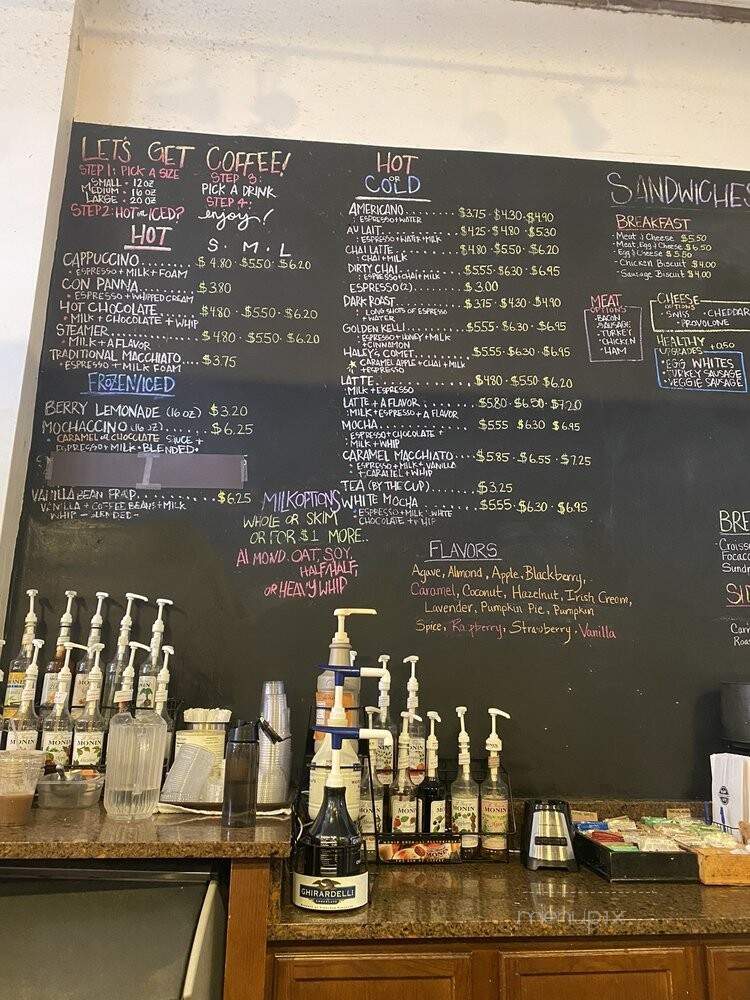 LET'S GET COFFEE!
STEP 1: PICK A SIZE
SMALL = 12 OZ
MEDIUM = 16 OZ
LARGE = 20 OZ
STEP 2: HOT OR ICED?
STEP 3:
PICK A DRINK
STEP 4:
enjoy!
HOT
S. M. L
CAPPUCCINO......$4.80 · $5.50 · $6.20
• ESPRESSO + MILK + FOAM
CON PANNA......$3.80
• ESPRESSO + WHIPPED CREAM
HOT CHOCOLATE......$4.80 · $5.50 · $6.20
• MILK + CHOCOLATE + WHIP
STEAMER......$4.80 · $5.50 · $6.20
• MILK + A FLAVOR
TRADITIONAL MACCHIATO...$3.75
• ESPRESSO + MILK FOAM
FROZEN/ICED
BERRY LEMONADE (16 OZ) $3.20
MOCHACCINO (16 OZ)......$6.25
• CARAMEL OR CHOCOLATE SAUCE +
ESPRESSO + MILK • BLENDED •
VANILLA BEAN FRAP......$6.25
VANILLA + COFFEE BEANS + MILK
WHIP - BLENDED -
MILK OPTIONS
WHOLE OR SKIM
OR FOR $1 MORE..
ALMOND, OAT, SOY,
HALF/HALF,
OR HEAVY WHIP
HOT
OR
COLD
AMERICANO......$3.75 · $4.30 · $4.90
: ESPRESSO + WATER
AU LAIT......$4.25 · $4.80 · $5.30
: ESPRESSO + WATER + MILK
CHAI LATTE......$4.80 · $5.50 · $6.20
: CHAI + MILK
DIRTY CHAI......$5.55 · $6.30 · $6.95
: ESPRESSO + CHAI + MILK
ESPRESSO (2)......$3.00
DARK ROAST......$3.75 · $4.30 · $4.90
: LONG SHOTS OF ESPRESSO
+ WATER
GOLDEN KELLI......$5.55 · $6.30 · $6.95
: ESPRESSO + HONEY + MILK
+ CINNAMON
HALEY'S COMET......$5.55 · $6.30 · $6.95
CARAMEL APPLE + CHAI + MILK
+ ESPRESSO
LATTE......$4.80 $5.50 $6.20
: MILK + ESPRESSO
LATTE + A FLAVOR......$5.80 · $6.50 · $7.20
: MILK + ESPRESSO + A FLAVOR
MOCHA......$5.55 $6.30 $6.95
: ESPRESSO + CHOCOLATE +
MILK + WHIP
CARAMEL MACCHIATO...$5.85 · $6.55 · $7.25
• ESPRESSO + MILK + VANILLA
+ CARAMEL + WHIP
TEA (BY THE CUP)......$3.25
WHITE MOCHA......$5.55 · $6.30 · $6.95
: ESPRESSO + MILK + WHITE
CHOCOLATE + WHIP
FLAVORS
Agave, Almond, Apple, Blackberry,
Caramel, Coconut, Hazelnut, Irish Cream,
Lavender, Pumpkin Pie, Pumpkin
Spice, Raspberry, Strawberry, Vanilla
SANDWICHES
BREAKFAST
• Meat & Cheese $5.50
• Meat, Egg & Cheese $6.50
• Egg & Cheese $5.50
• Chicken Biscuit $4.00
• Sausage Biscuit $4.00
MEAT
OPTIONS
• BACON
• SAUSAGE
• TURKEY
• CHICKEN
• HAM
CHEESE
OPTIONS
• SWISS • CHEDDAR
• PROVOLONE
HEALTHY
UPGRADES +0.50
• EGG WHITES
• TURKEY SAUSAGE
• VEGGIE SAUSAGE
BRE
Croiss
Focacc
MONIN
MONIN
MONIN
MONIN
MONIN
MONIN
MONIN
GHIRARDELLI
menupix